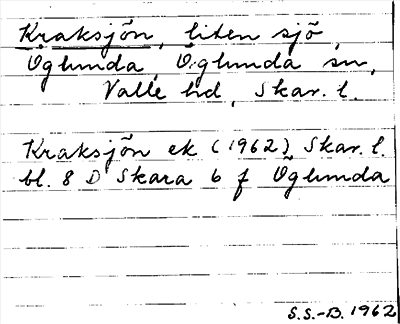 Kraksjön, liten sjö,
Öglunda, Öglunda sn,
Valle hd, Skar. l.
Kraksjön ek (1962) Skar. l.
bl. 8 D Skara 6 f Öglunda
S.S.-B. 1962